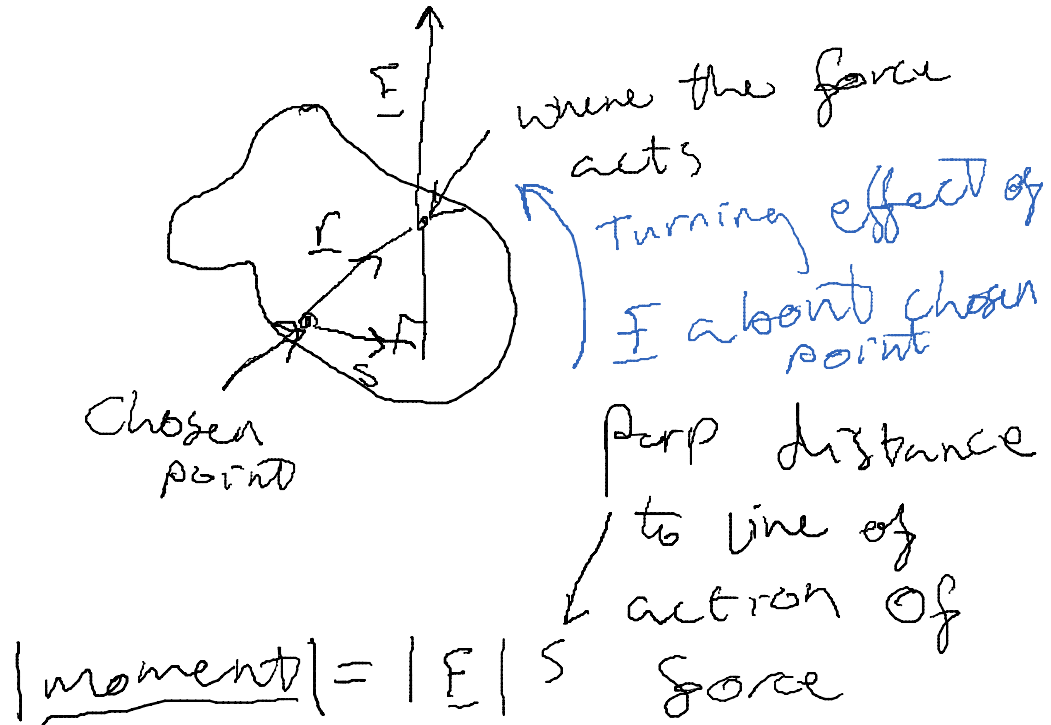 F
where the force
acts
r
Turning effect of
F about chosen
point
s
Chosen
point
Perp distance
to line of
action of
force
|moment| = |F| s